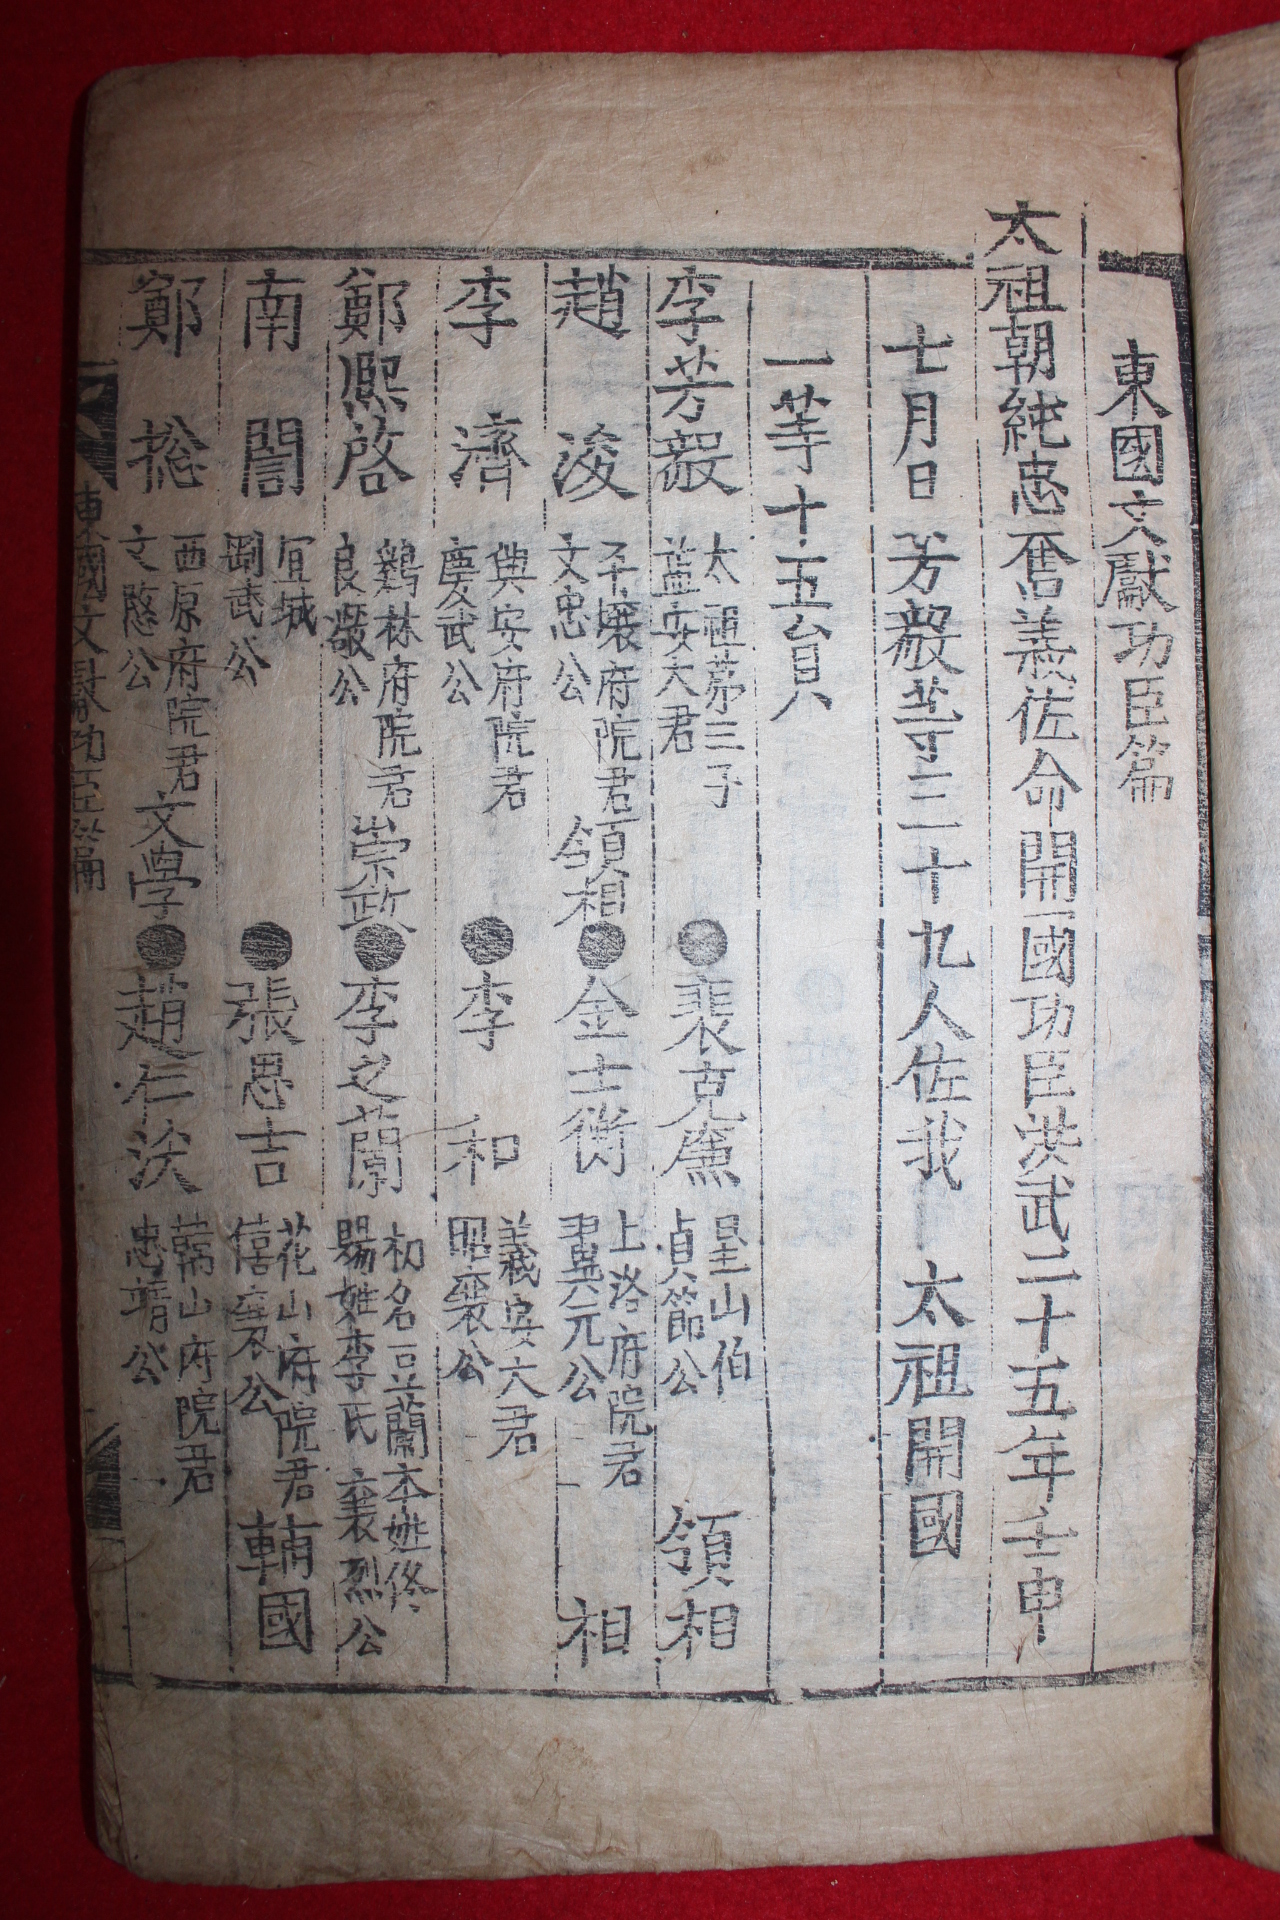 東國文獻功臣篇
太祖朝純忠奮義佐命開國功臣洪武二十五年壬申
七月日芳毅等三十九人佐我 太祖開國
一等十五員
李芳毅 太祖第三子 益安大君 ●裴克廉 星山伯 貞節公 領相
趙浚 平壤府院君 文忠公 領相●金士衡 上洛府院君 翼元公 相
李濟 興安府院君 景武公 ●李和 義安大君 昭襄公
鄭熙啓 鷄林府院君 良景公 崇政●李之蘭 初名豆蘭本姓佟 賜姓李氏 襄烈公
南誾 宜城 剛武公 ●張思吉 花山府院君 僖襄公 輔國
鄭摠 西原府院君 文愍公 文學●趙仁沃 漢山府院君 忠靖公
東國文獻功臣篇